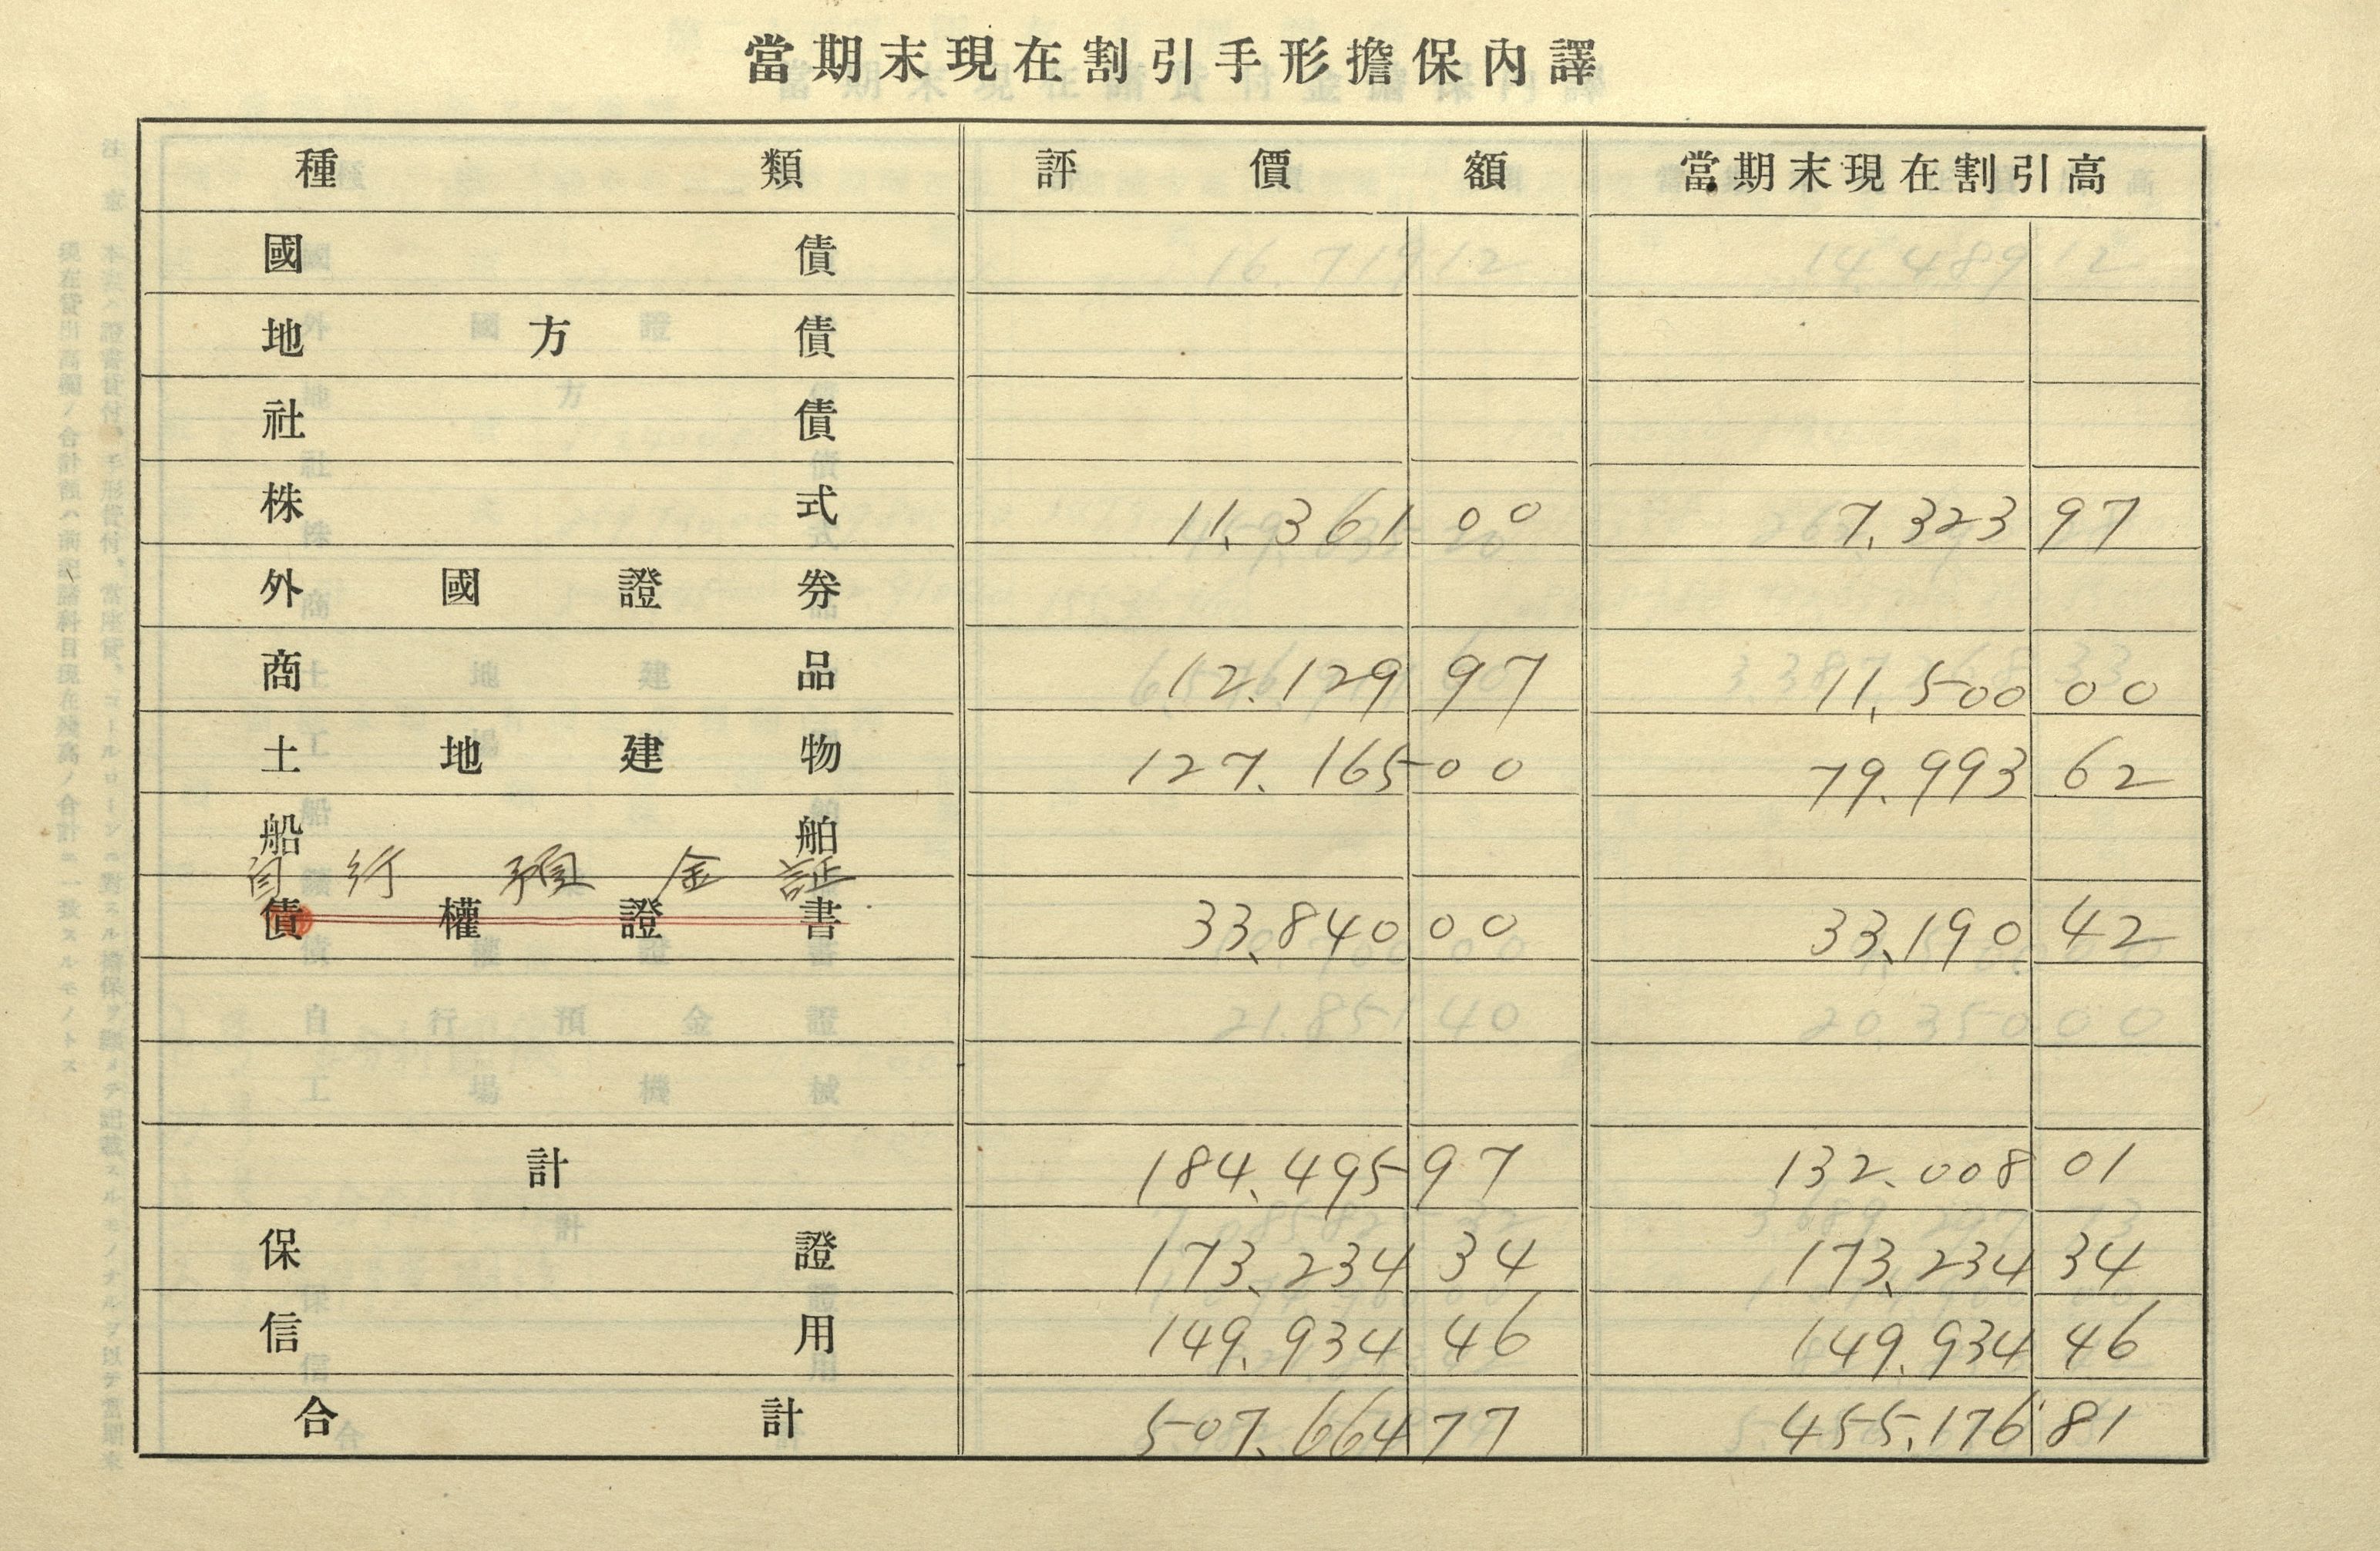 當期末現在割引手形擔保內譯
種類 評價額 當期末現在割引高
國債
地方債
社債
株式 11,361 00 7,323 97
外國證券
商品 12.129 97 11,500 00
土地建物 127.165 00 79.993 62
船舶
自行預金証
債權證書 33,840 00 33,190 42
計 184.495 97 132.008 01
保證 173,234 34 173,234 34
信用 149.934 46 149.934 46
合計 507.664 77 455,176 81